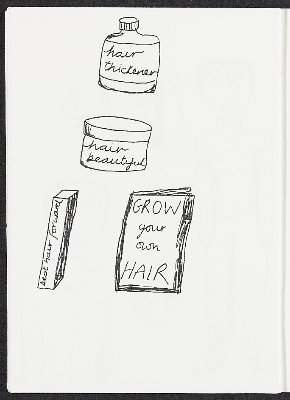 hair
thickener
hair
beautiful
best hair forward
GROW
your
own
HAIR